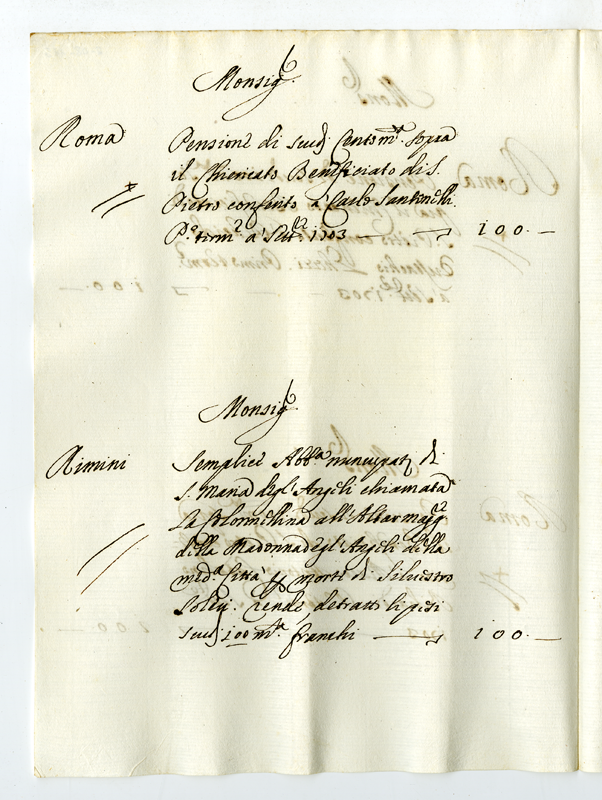 Monsig.r
Roma
Pensione di scudi Cento m.ta sopra
il Chiericato Beneficiato di S.
Pietro conferito a' Carlo Santinelli.
P.o term.e a' Sett.e 1703 — 100. —
Monsig.r
Rimini
Semplice Abb.a nuncupat. di
S. Maria degl'Angeli chiamata
La Colonnellina all'Altar magg.e
della Madonna degl'Angeli della
med.a Città p morte di Silvestro
Rende detratti li pesi
scudi 100 m.ta franchi — 100. —